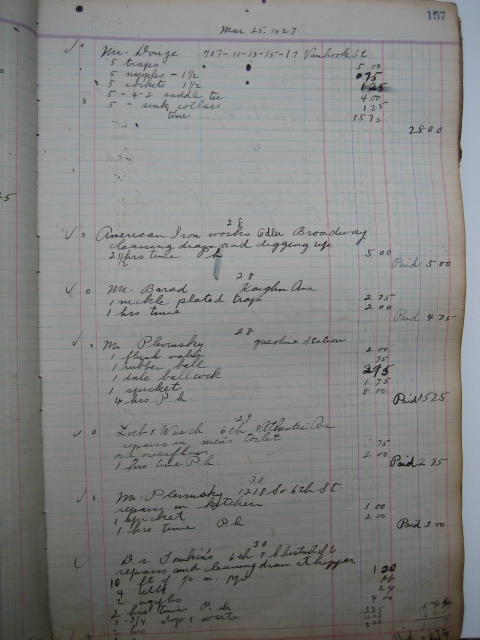 157
Mar 25, 1927
Mr. Douge 707-11-13-15-17 Vanhook St
5 traps 5 00
5 nipples - 1½ 075
5 sockets 1½ 125
5 - 4-2 saddle tee 4 00
5 - sink collars 1 25
time 15 75
28 00
28
American Iron works 6dler Broadway
cleaning drain and digging up
2½ hrs time P h 5 00
Paid 5 00
28
Mr. Barad Kaighn Ave
1 nickle plated trap 2 75
1 hrs time 2 00
Paid 4 75
28
Mr Plevinsky gasoline Station
1 flush valve 2 00
1 rubber ball 75
1 ballcock 295
1 spicket 1 75
4 hrs P h 8 00
Paid 1525
29
6th & Atlantic Av
repairs in men's toilet
on overflow 75
1 hrs time P h 2 00
Paid 2 75
30
Mr. Plevinsky 1218 So 6th St
repairs in kitchen
1 spicket 1 00
1 hrs time P h 2 00
Paid 3 00
30
Dr. Tomkin's 6th &
repairs and cleaning drain at hopper
10 ft of ½ in. 1 20
4 ells
2 nipples 24
2 hrs time P. h 4 00
1 - 3/4 stop & waste
2 hrs